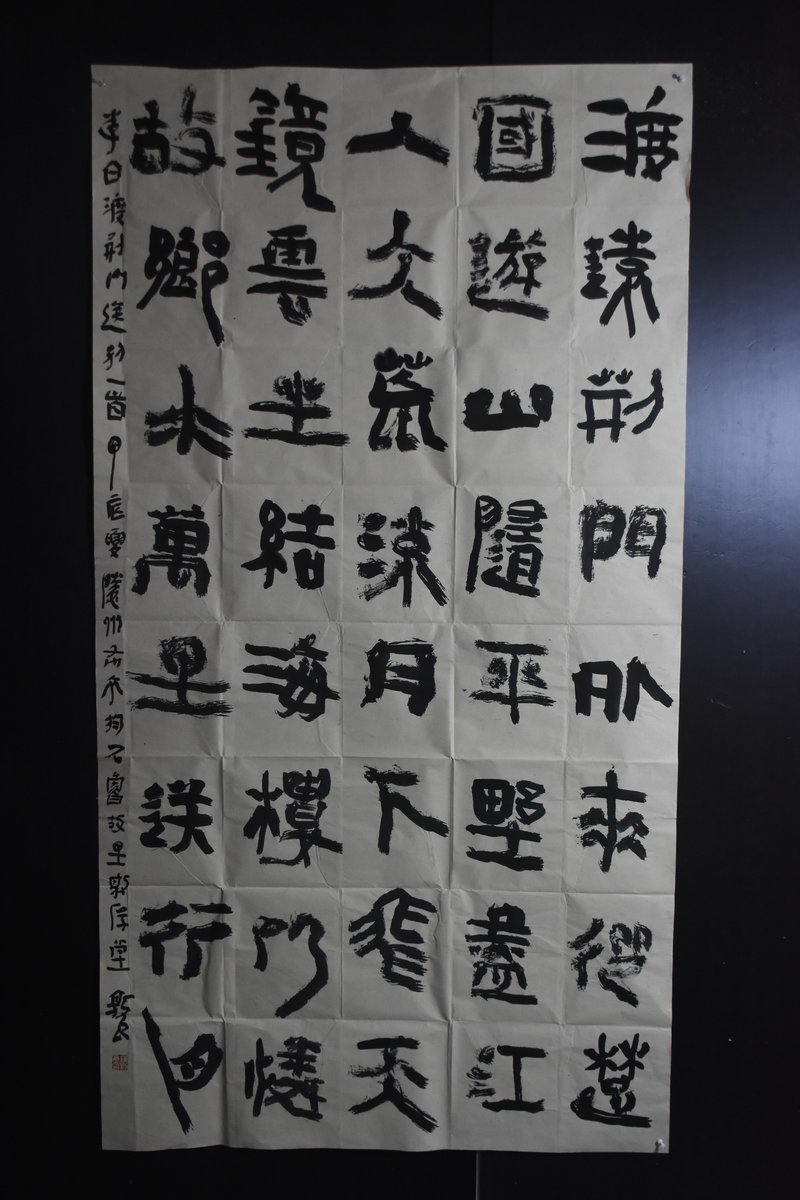 渡遠荊門外來從楚
國遊山隨平野盡江
入大荒流月下飛天
鏡雲生結海樓仍憐
故鄉水萬里送行舟
李白渡荊門送別一首甲辰夏 州 石魯故里 堂